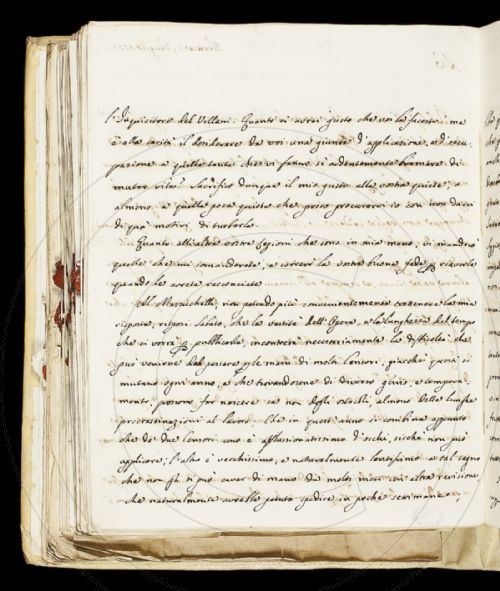 l'Inquisitore del Villani. Quanto vi avrei gusto che voi lo faceste! ma
è alta carità il desiderare da voi una giunta d'applicazione, ed occu-
pazione a quelle tante che vi fanno sì ardentemente bramare di
mutar vita! Sacrifico dunque il mio gusto alla vostra quiete, o
almeno a quella poca quiete che posso procurarvi io con non darvi
di più motivi di turbarla.
Quanto all'altre vostre Lezioni che sono in mio mano; vi manderò
quelle che mi comandarete, e correrà la vostra buona fede per riaverle
quando le avrete racconciate.
Al Mazuchelli, non potendo più convenientemente trattenere la mia
risposta, risposi sabato, che la vastità dell'Opera, e la lunghezza del tempo
che ci vorrà per pubblicarla, incontrerà necessariamente la difficoltà che
può venirne dal passare per le mani di molti Censori, giacché questi si
mutano ogni anno, e che trovandosene di diverso genio, e tempera-
mento, possono far nascere se non degli ostacoli, almeno delle lunghe
procrastinazioni al lavoro. Che in quest'anno si combina appunto
che de' due Censori uno è afflissionatissimo d'occhi, sicché non può
applicare; l'altro è vecchissimo, e naturalmente lentissimo a tal segno
che non gli si può cavar di mano da molti mesi con altra revisione,
che naturalmente avrebbe potuta spedire in poche settimane;